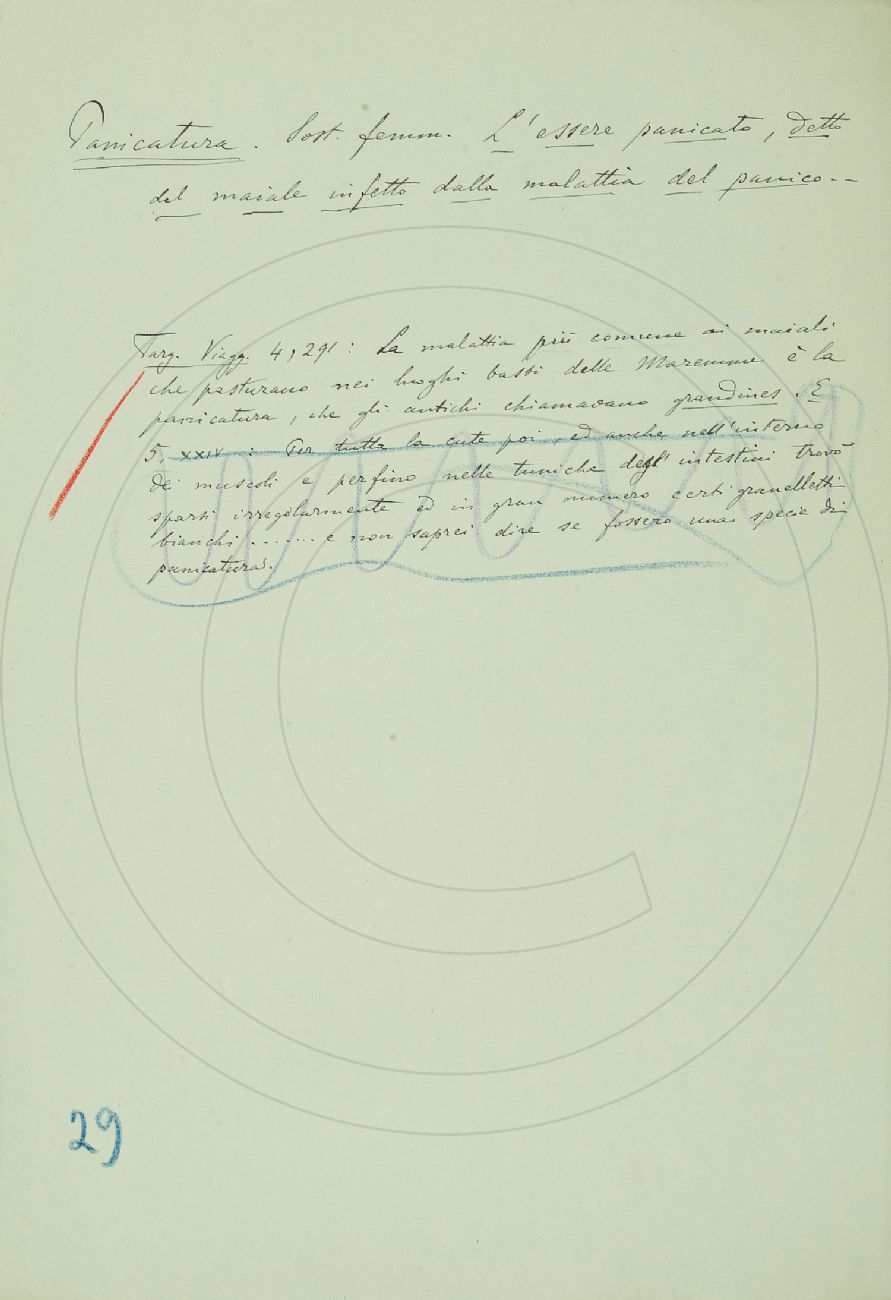 Panicatura. Sost. femm. L'essere panicato, detto
del maiale infetto dalla malattia del panico.--
Targ. Viagg. 4, 291: La malattia più comune ai maiali
che pasturano nei luoghi bassi delle Maremme è la
panicatura, che gli antichi chiamavano grandines. E
5. XXIV: Per tutta la cute poi, ed anche nell'interno
dei muscoli e perfino nelle tuniche degl'intestini trovò
sparsi irregolarmente ed in gran numero certi granelletti
bianchi ....... e non saprei dire se fossero una specie di
panicatura.
29